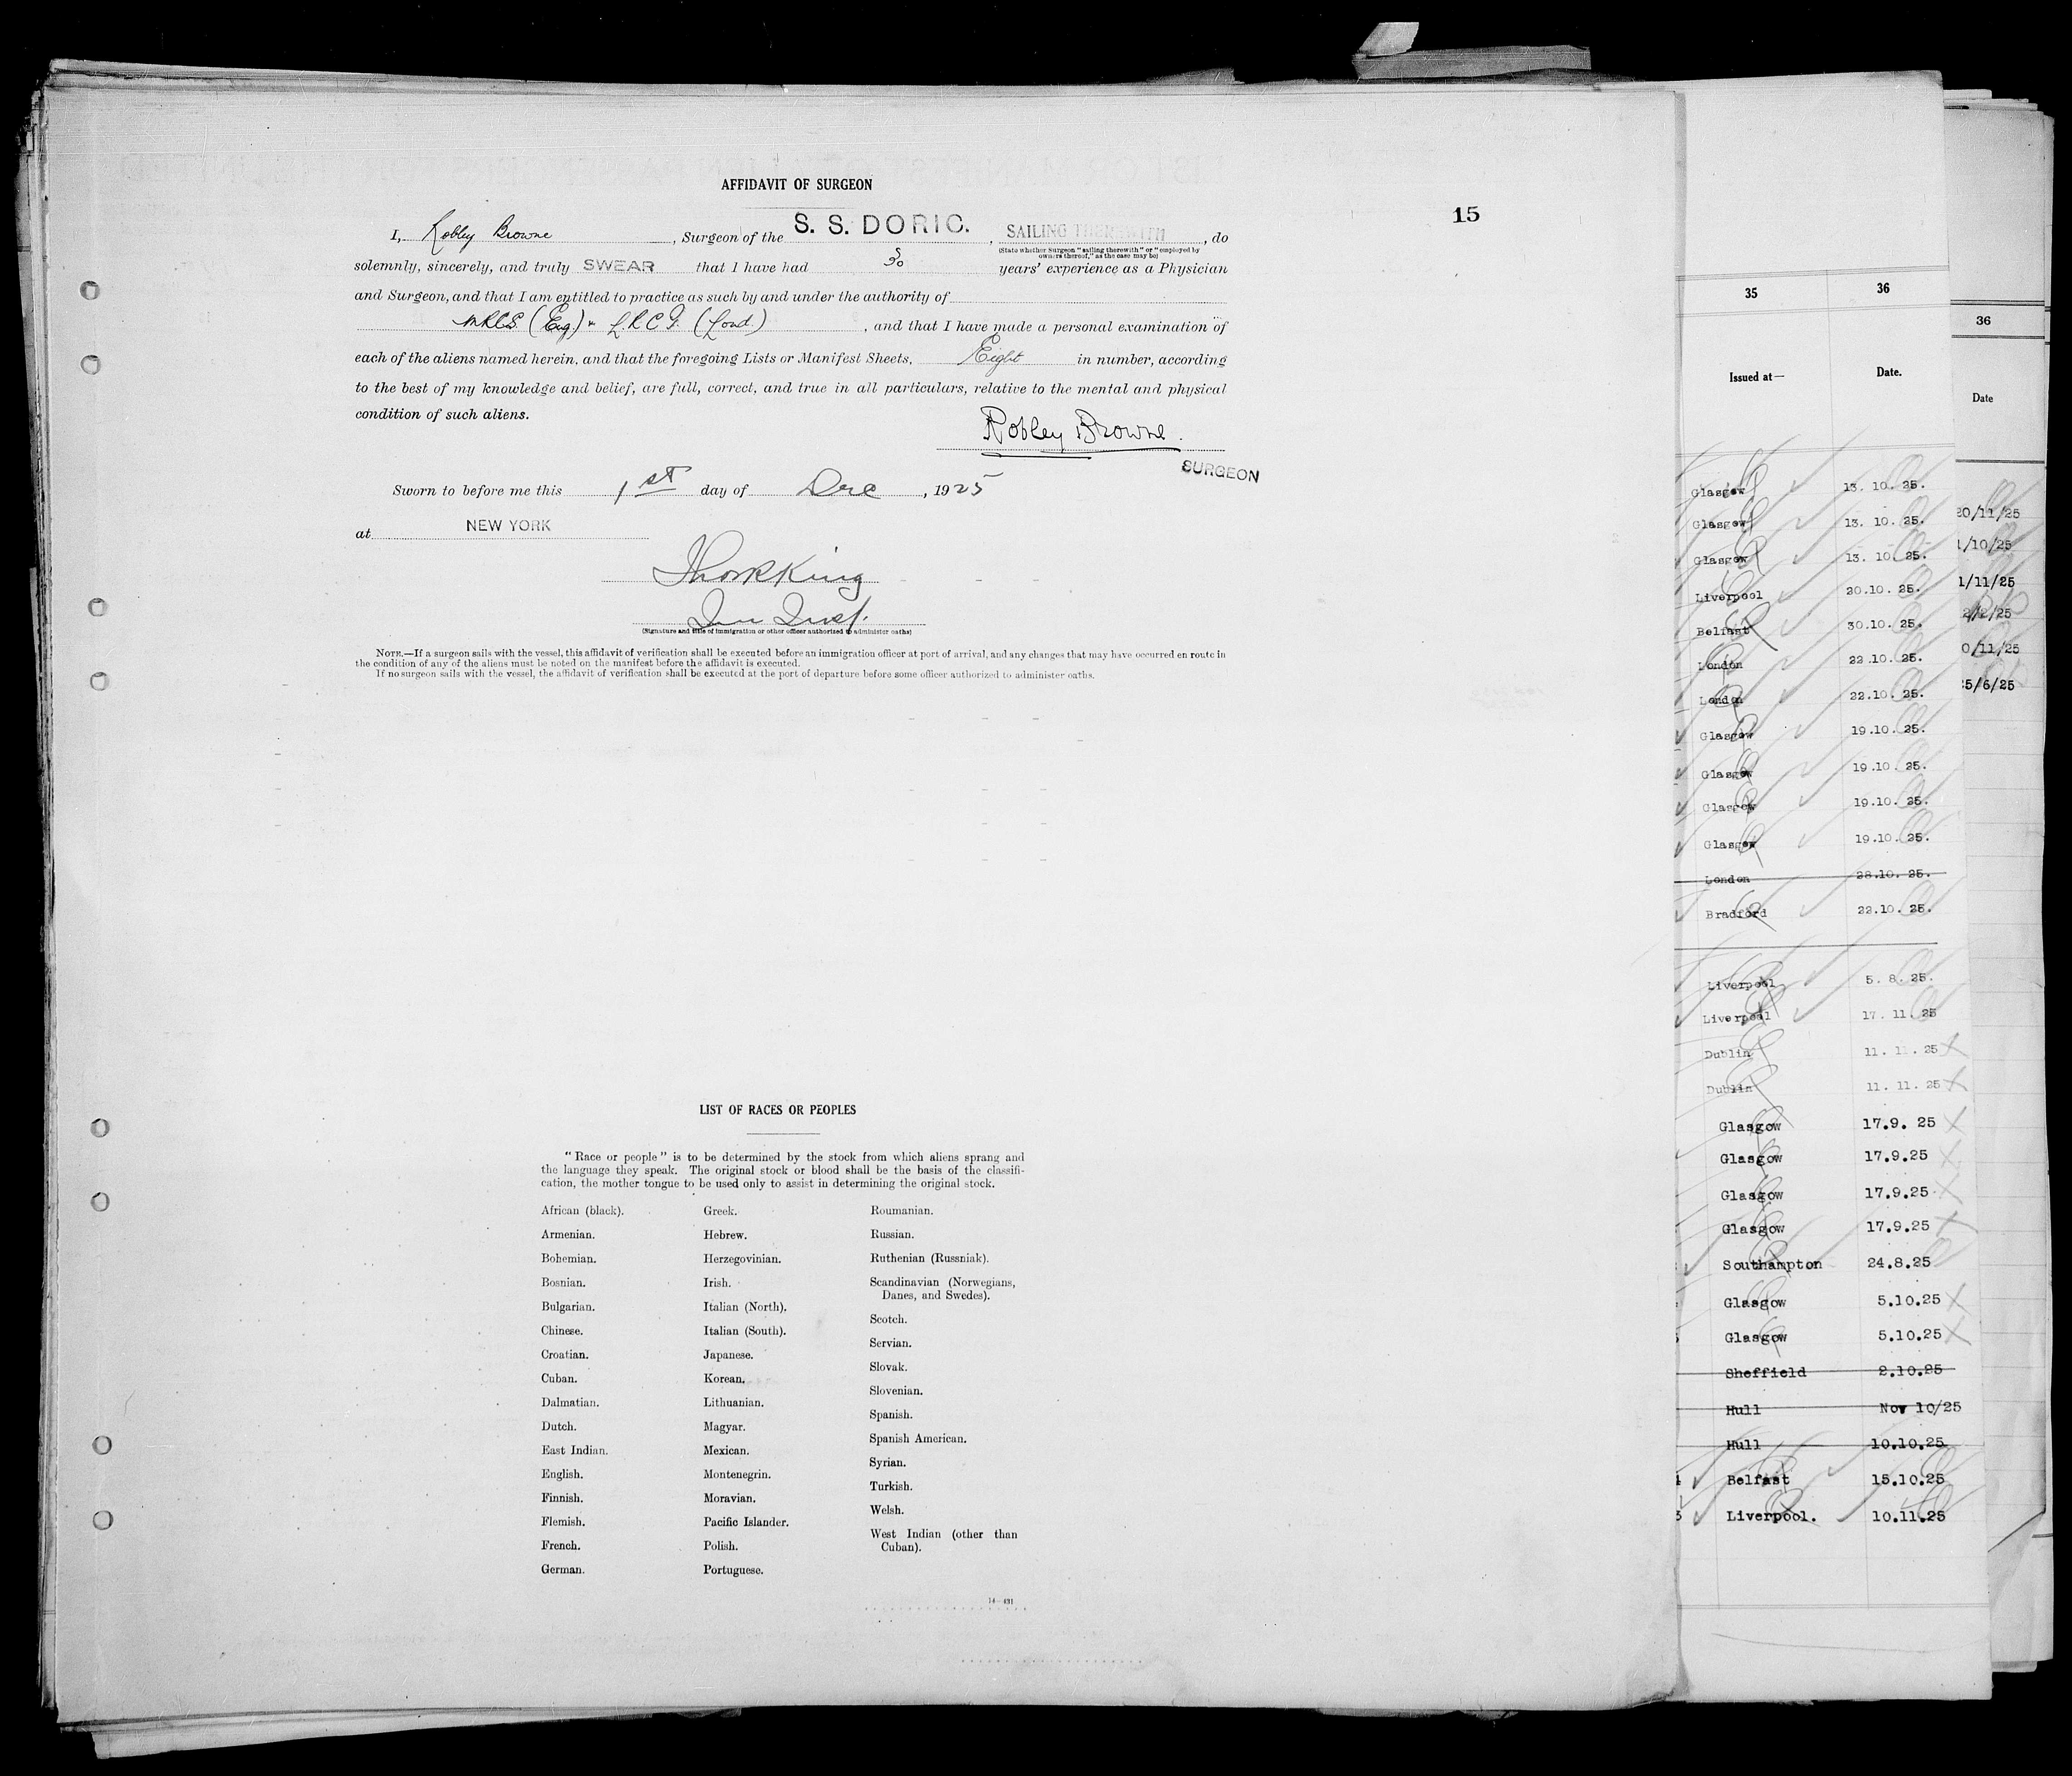 AFFIDAVIT OF SURGEON
15
I, Robley Browne, Surgeon of the S. S. DORIC., SAILING THEREWITH, do
(State whether Surgeon "sailing therewith" or "employed by
owners thereof," as the case may be)
solemnly, sincerely, and truly SWEAR that I have had 30 years' experience as a Physician
and Surgeon, and that I am entitled to practice as such by and under the authority of
MRCS (Eng) & LRCP (Lond), and that I have made a personal examination of
each of the aliens named herein, and that the foregoing Lists or Manifest Sheets, Eight in number, according
to the best of my knowledge and belief, are full, correct, and true in all particulars, relative to the mental and physical
condition of such aliens.
Robley Browne.
SURGEON
Sworn to before me this 1st day of Dec, 1925
at NEW YORK
King
Imm Insp.
(Signature and title of immigration or other officer authorized to administer oaths)
NOTE.—If a surgeon sails with the vessel, this affidavit of verification shall be executed before an immigration officer at port of arrival, and any changes that may have occurred en route in
the condition of any of the aliens must be noted on the manifest before the affidavit is executed.
If no surgeon sails with the vessel, the affidavit of verification shall be executed at the port of departure before some officer authorized to administer oaths.
LIST OF RACES OR PEOPLES
"Race or people" is to be determined by the stock from which aliens sprang and
the language they speak. The original stock or blood shall be the basis of the classifi-
cation, the mother tongue to be used only to assist in determining the original stock.
African (black).
Armenian.
Bohemian.
Bosnian.
Bulgarian.
Chinese.
Croatian.
Cuban.
Dalmatian.
Dutch.
East Indian.
English.
Finnish.
Flemish.
French.
German.
Greek.
Hebrew.
Herzegovinian.
Irish.
Italian (North).
Italian (South).
Japanese.
Korean.
Lithuanian.
Magyar.
Mexican.
Montenegrin.
Moravian.
Pacific Islander.
Polish.
Portuguese.
Roumanian.
Russian.
Ruthenian (Russniak).
Scandinavian (Norwegians,
Danes, and Swedes).
Scotch.
Servian.
Slovak.
Slovenian.
Spanish.
Spanish American.
Syrian.
Turkish.
Welsh.
West Indian (other than
Cuban).
14—431
35 36
Issued at— Date.
Glasgow 13. 10. 25.
Glasgow 13. 10. 25.
Glasgow 13. 10. 25.
Liverpool 20.10. 25.
Belfast 30.10. 25.
London 22.10. 25.
London 22.10. 25.
Glasgow 19.10. 25.
Glasgow 19.10. 25.
Glasgow 19.10. 25.
Glasgow 19.10. 25.
London 28.10. 25.
Bradford 22.10. 25.
Liverpool 5. 8. 25.
Liverpool 17. 11. 25
Dublin 11. 11. 25
Dublin 11. 11. 25
Glasgow 17.9. 25
Glasgow 17.9.25
Glasgow 17.9.25
Glasgow 17.9.25
Southampton 24.8.25
Glasgow 5.10.25
Glasgow 5.10.25
Sheffield 2.10.25
Hull Nov 10/25
Hull 10.10.25
Belfast 15.10.25
Liverpool. 10.11.25
36
Date
20/11/25
1/10/25
1/11/25
2/2/25
0/11/25
5/6/25